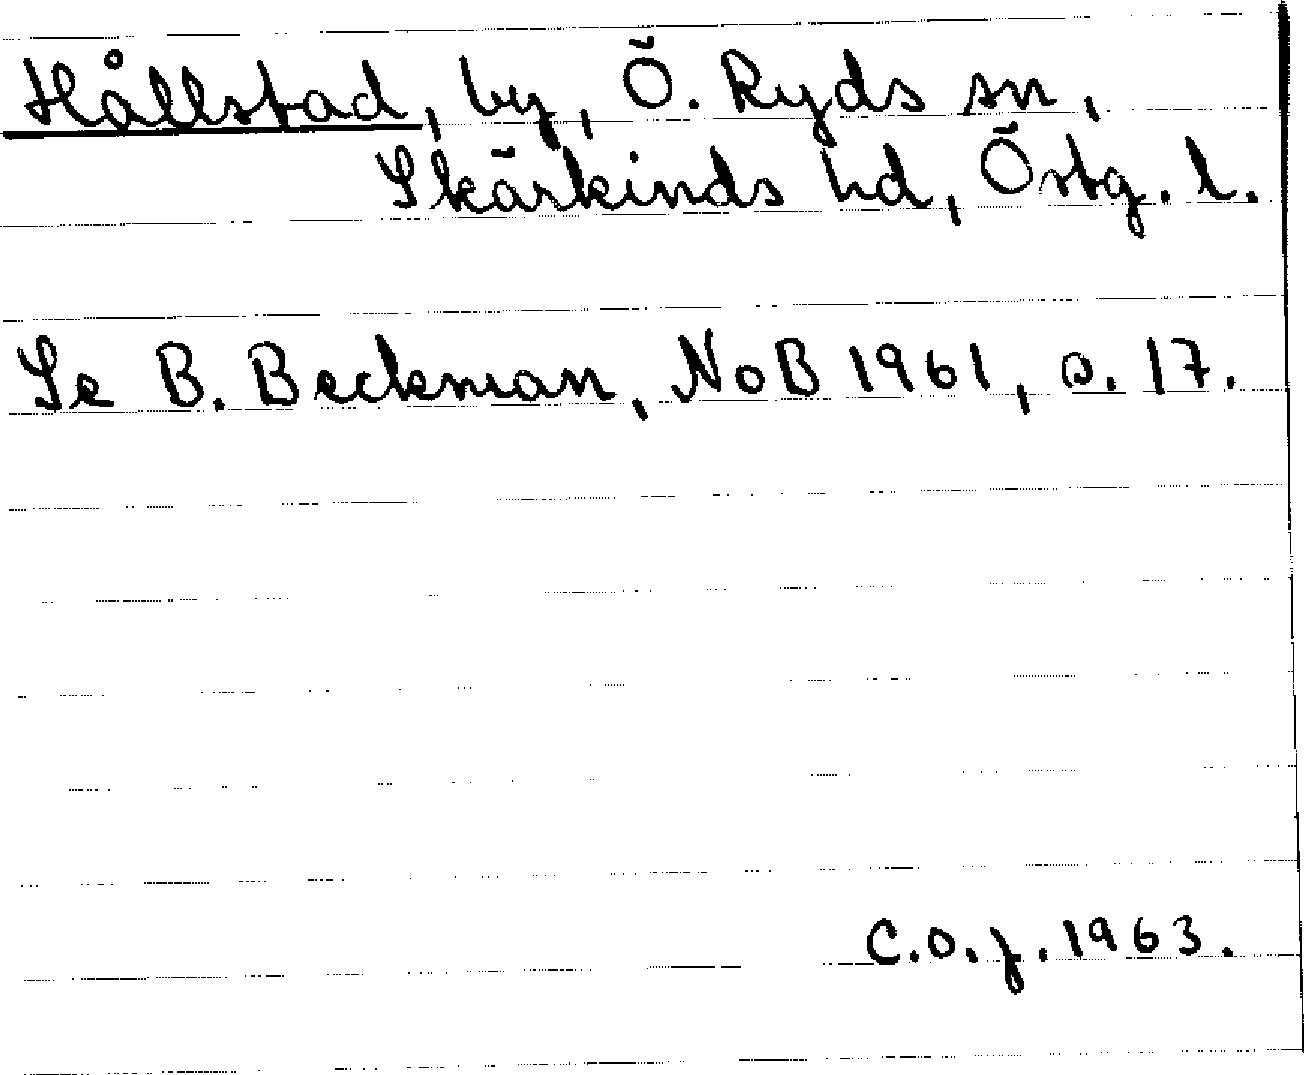 Hållstad, by, Ö. Ryds sn,
Skärkinds hd, Östg. l.
Se B. Beckman, NoB 1961, s. 17.
C.O.J. 1963.